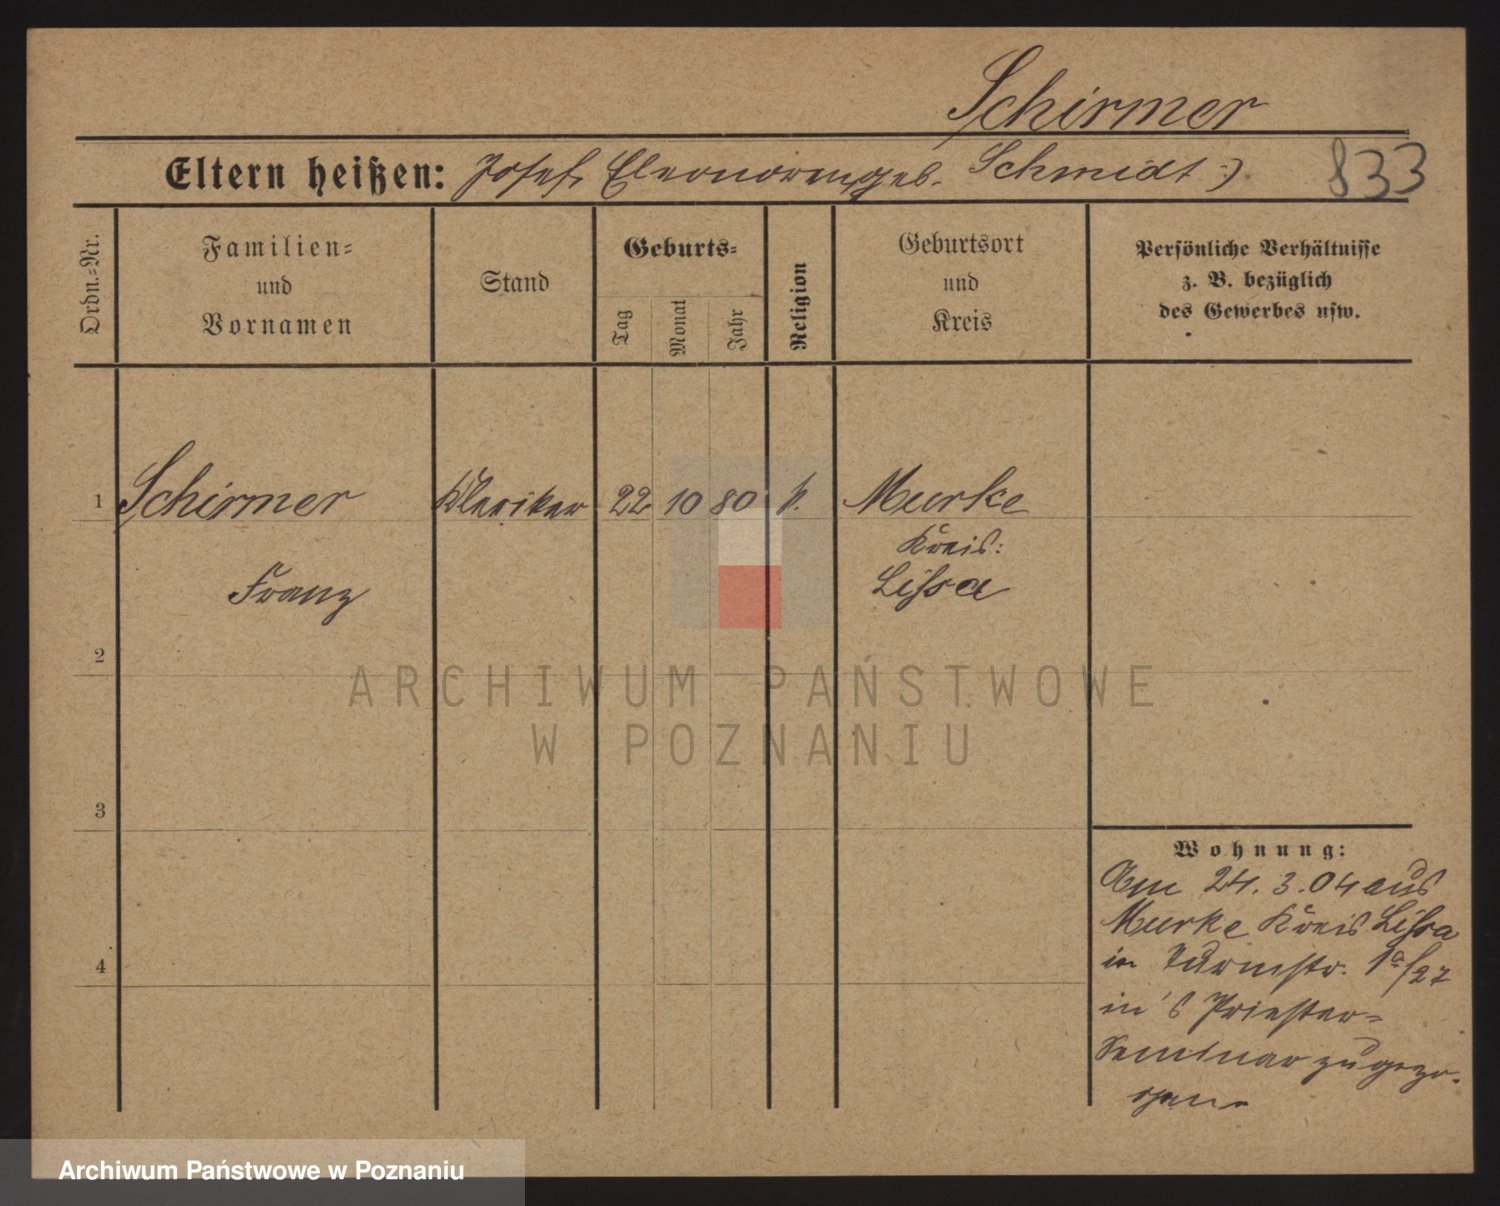 Schirmer
Eltern heißen: Josef, Eleonoren, geb. Schmidt :)
833
Ordn.-Nr.
Familien-
und
Vornamen
Stand
Geburts-
Tag
Monat
Jahr
Religion
Geburtsort
und
Kreis
Persönliche Verhältnisse
z. B. bezüglich
des Gewerbes usw.
1 Schirmer Kleriker 22 10 80 k. Murke
Kreis:
Franz Lissa
2
ARCHIWUM PAŃSTWOWE
W POZNANIU
3
Wohnung:
Am 24.3.04 aus
Murke Kreis Lissa
in Turmstr. 1a/27
4
in's Priester-
Seminar zugezo-
gen.
Archiwum Państwowe w Poznaniu